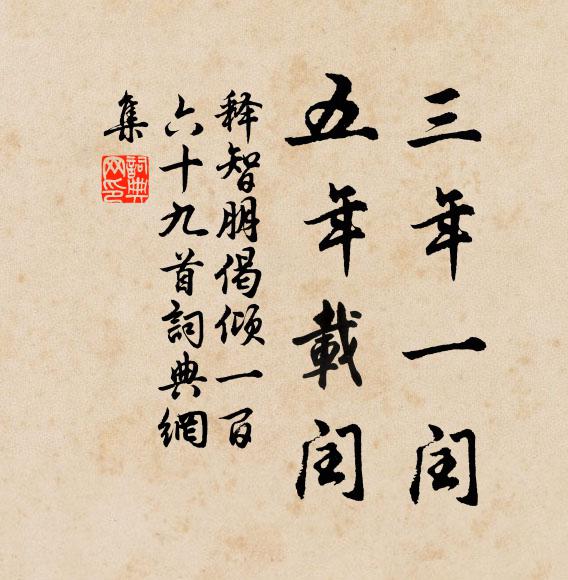 三年一闰
五年載闰
释智朋偈倾一百
六十九首詞典網
集
詞典
网印